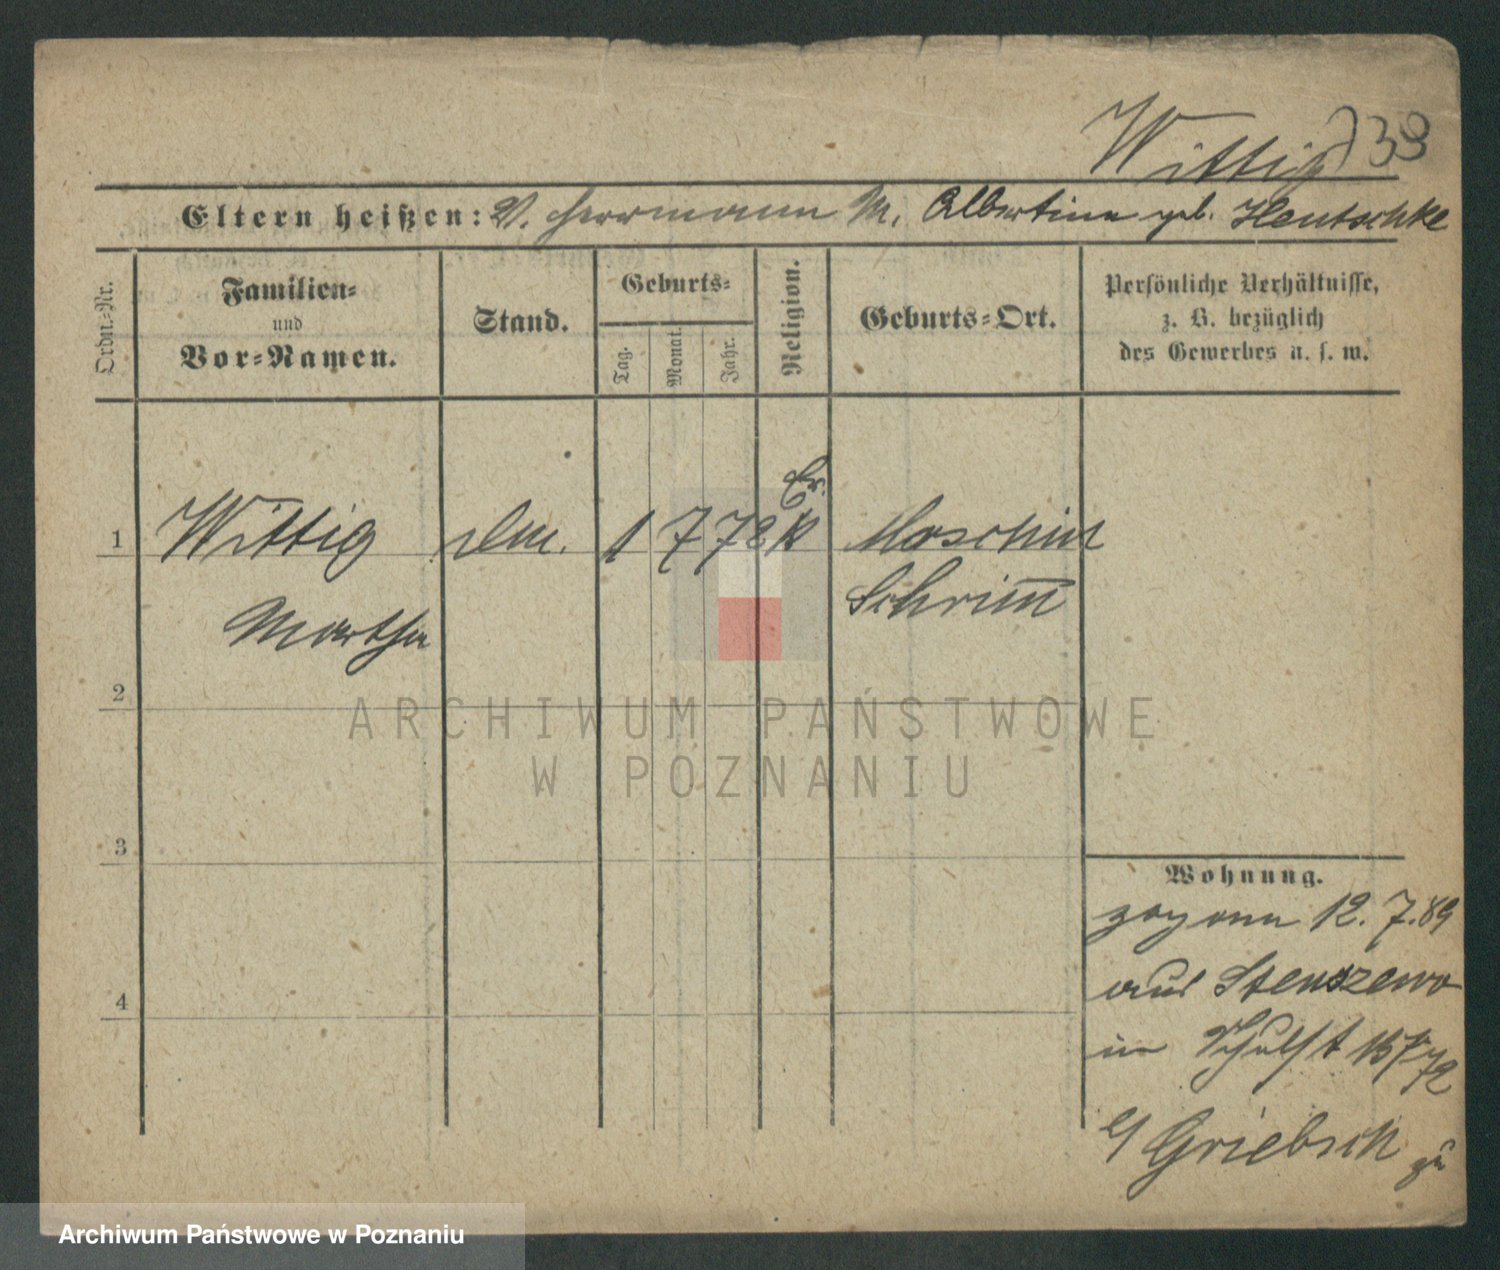 Wittig 739
Eltern heißen: V. Herrmann M. Albertine geb. Hentschke
Ordn.-Nr.
Familien-
und
Vor-Namen.
Stand.
Geburts-
Tag.
Monat.
Jahr.
Religion.
Geburts-Ort.
Persönliche Verhältnisse,
z. B. bezüglich
des Gewerbes u. s. w.
1 Wittig 1 7 72 k Moschin
Martha Schrim̅
2
3
4
Wohnung.
zog am 12. 7. 89
aus Stenszewo
in
b/ Griebsch zu
ARCHIWUM PAŃSTWOWE
W POZNANIU
Archiwum Państwowe w Poznaniu